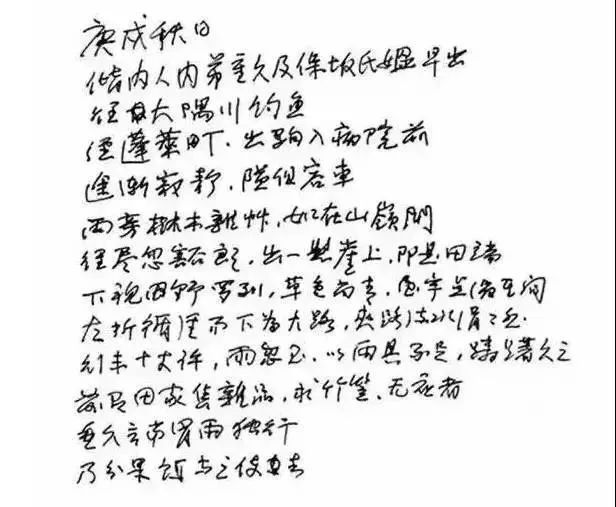 庚戌秋日
偕内人内弟重久及保坂氏姐早出
往大隅川钓鱼
经蓬莱町、出驹入病院前
途渐寂静、隘仅容车
两旁树木杂草,如在山岭间
径尽忽豁然,出一悬崖上,即是田端
下视田野罗列,草色尚青,屋宇
左折循崖而下为大路,夹路
行未十丈许,雨忽至、以雨具不足,踌躇久之
前足田家售杂品,求竹笠、无应者
重久言当冒雨独行
乃分果饵与之使直去